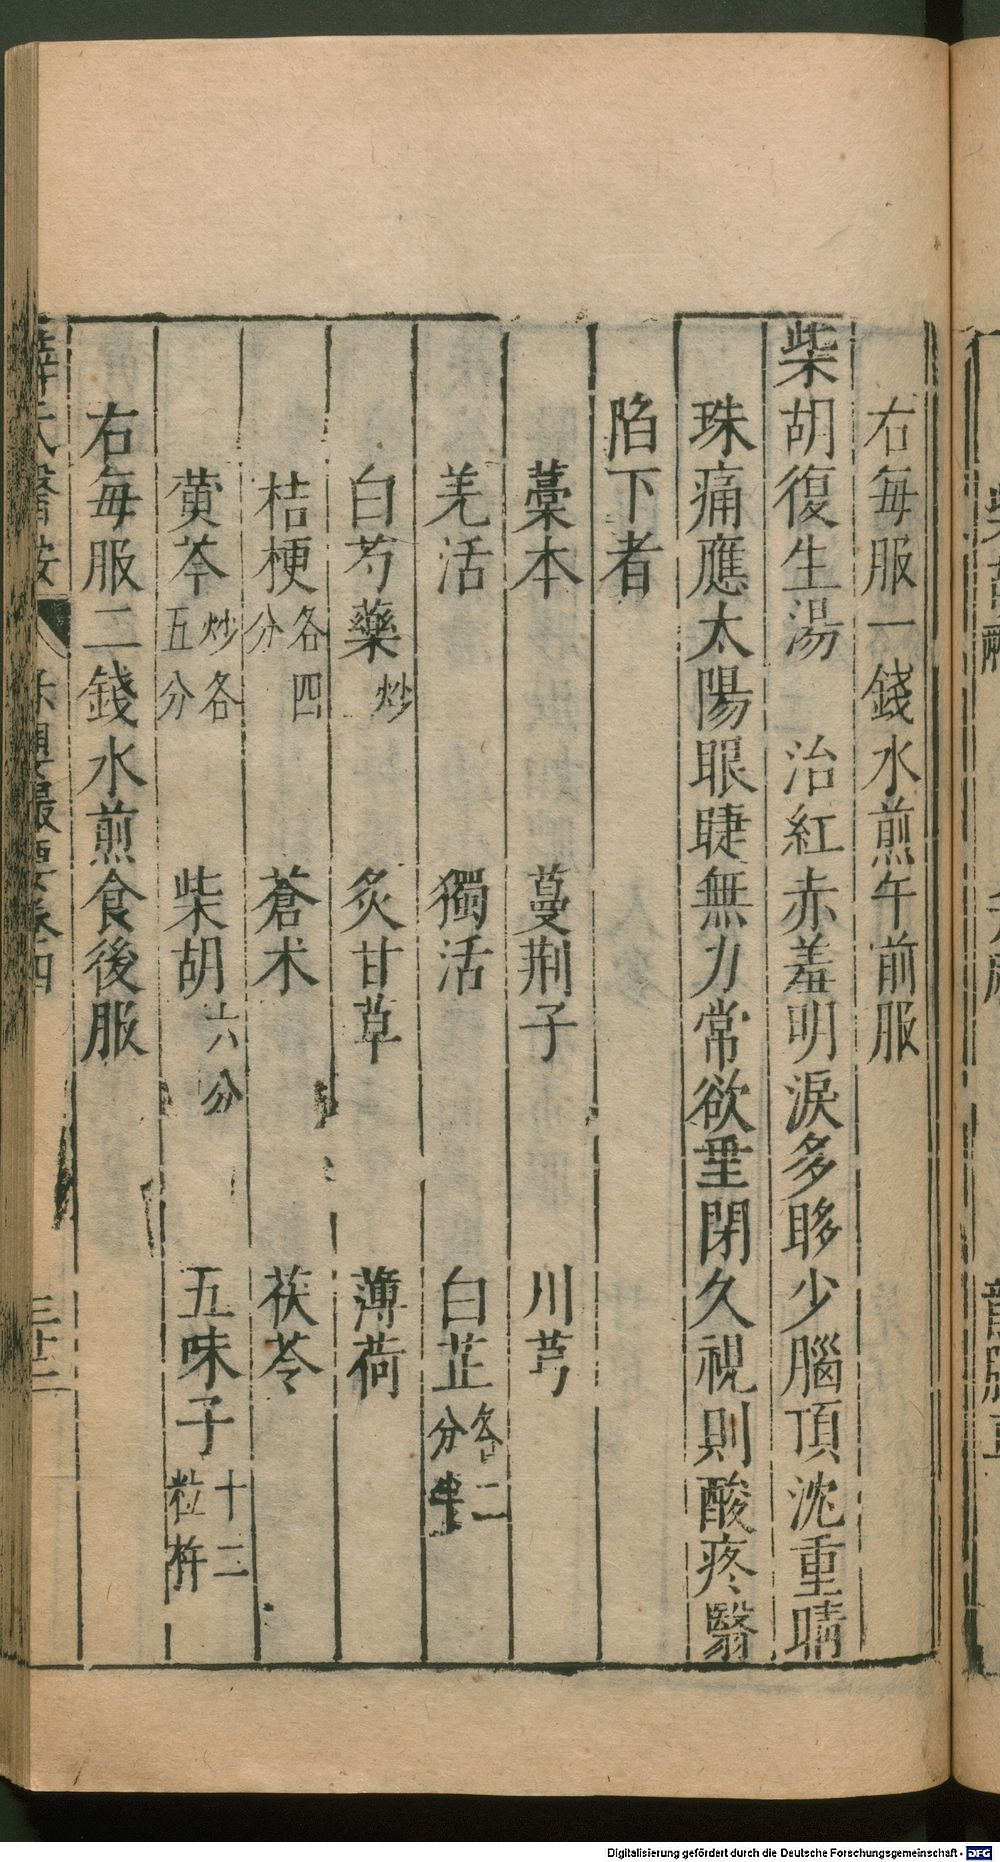 右每服一錢水煎午前服
柴胡復生湯　治紅赤羞明淚多眵少腦頂沈重睛
珠痛應太陽眼睫無力常欲垂閉久視則酸疼翳
陷下者
藁本　蔓荆子　川芎
羌活　獨活　白芷各二分半
白芍藥炒　炙甘草　薄荷
桔梗各四分　蒼术　茯苓
黄芩炒各五分　柴胡六分　五味子十二粒杵
右每服二錢水煎食後服
薛氏醫按　原機啟微卷四　三十二
Digitalisierung gefördert durch die Deutsche Forschungsgemeinschaft - DFG